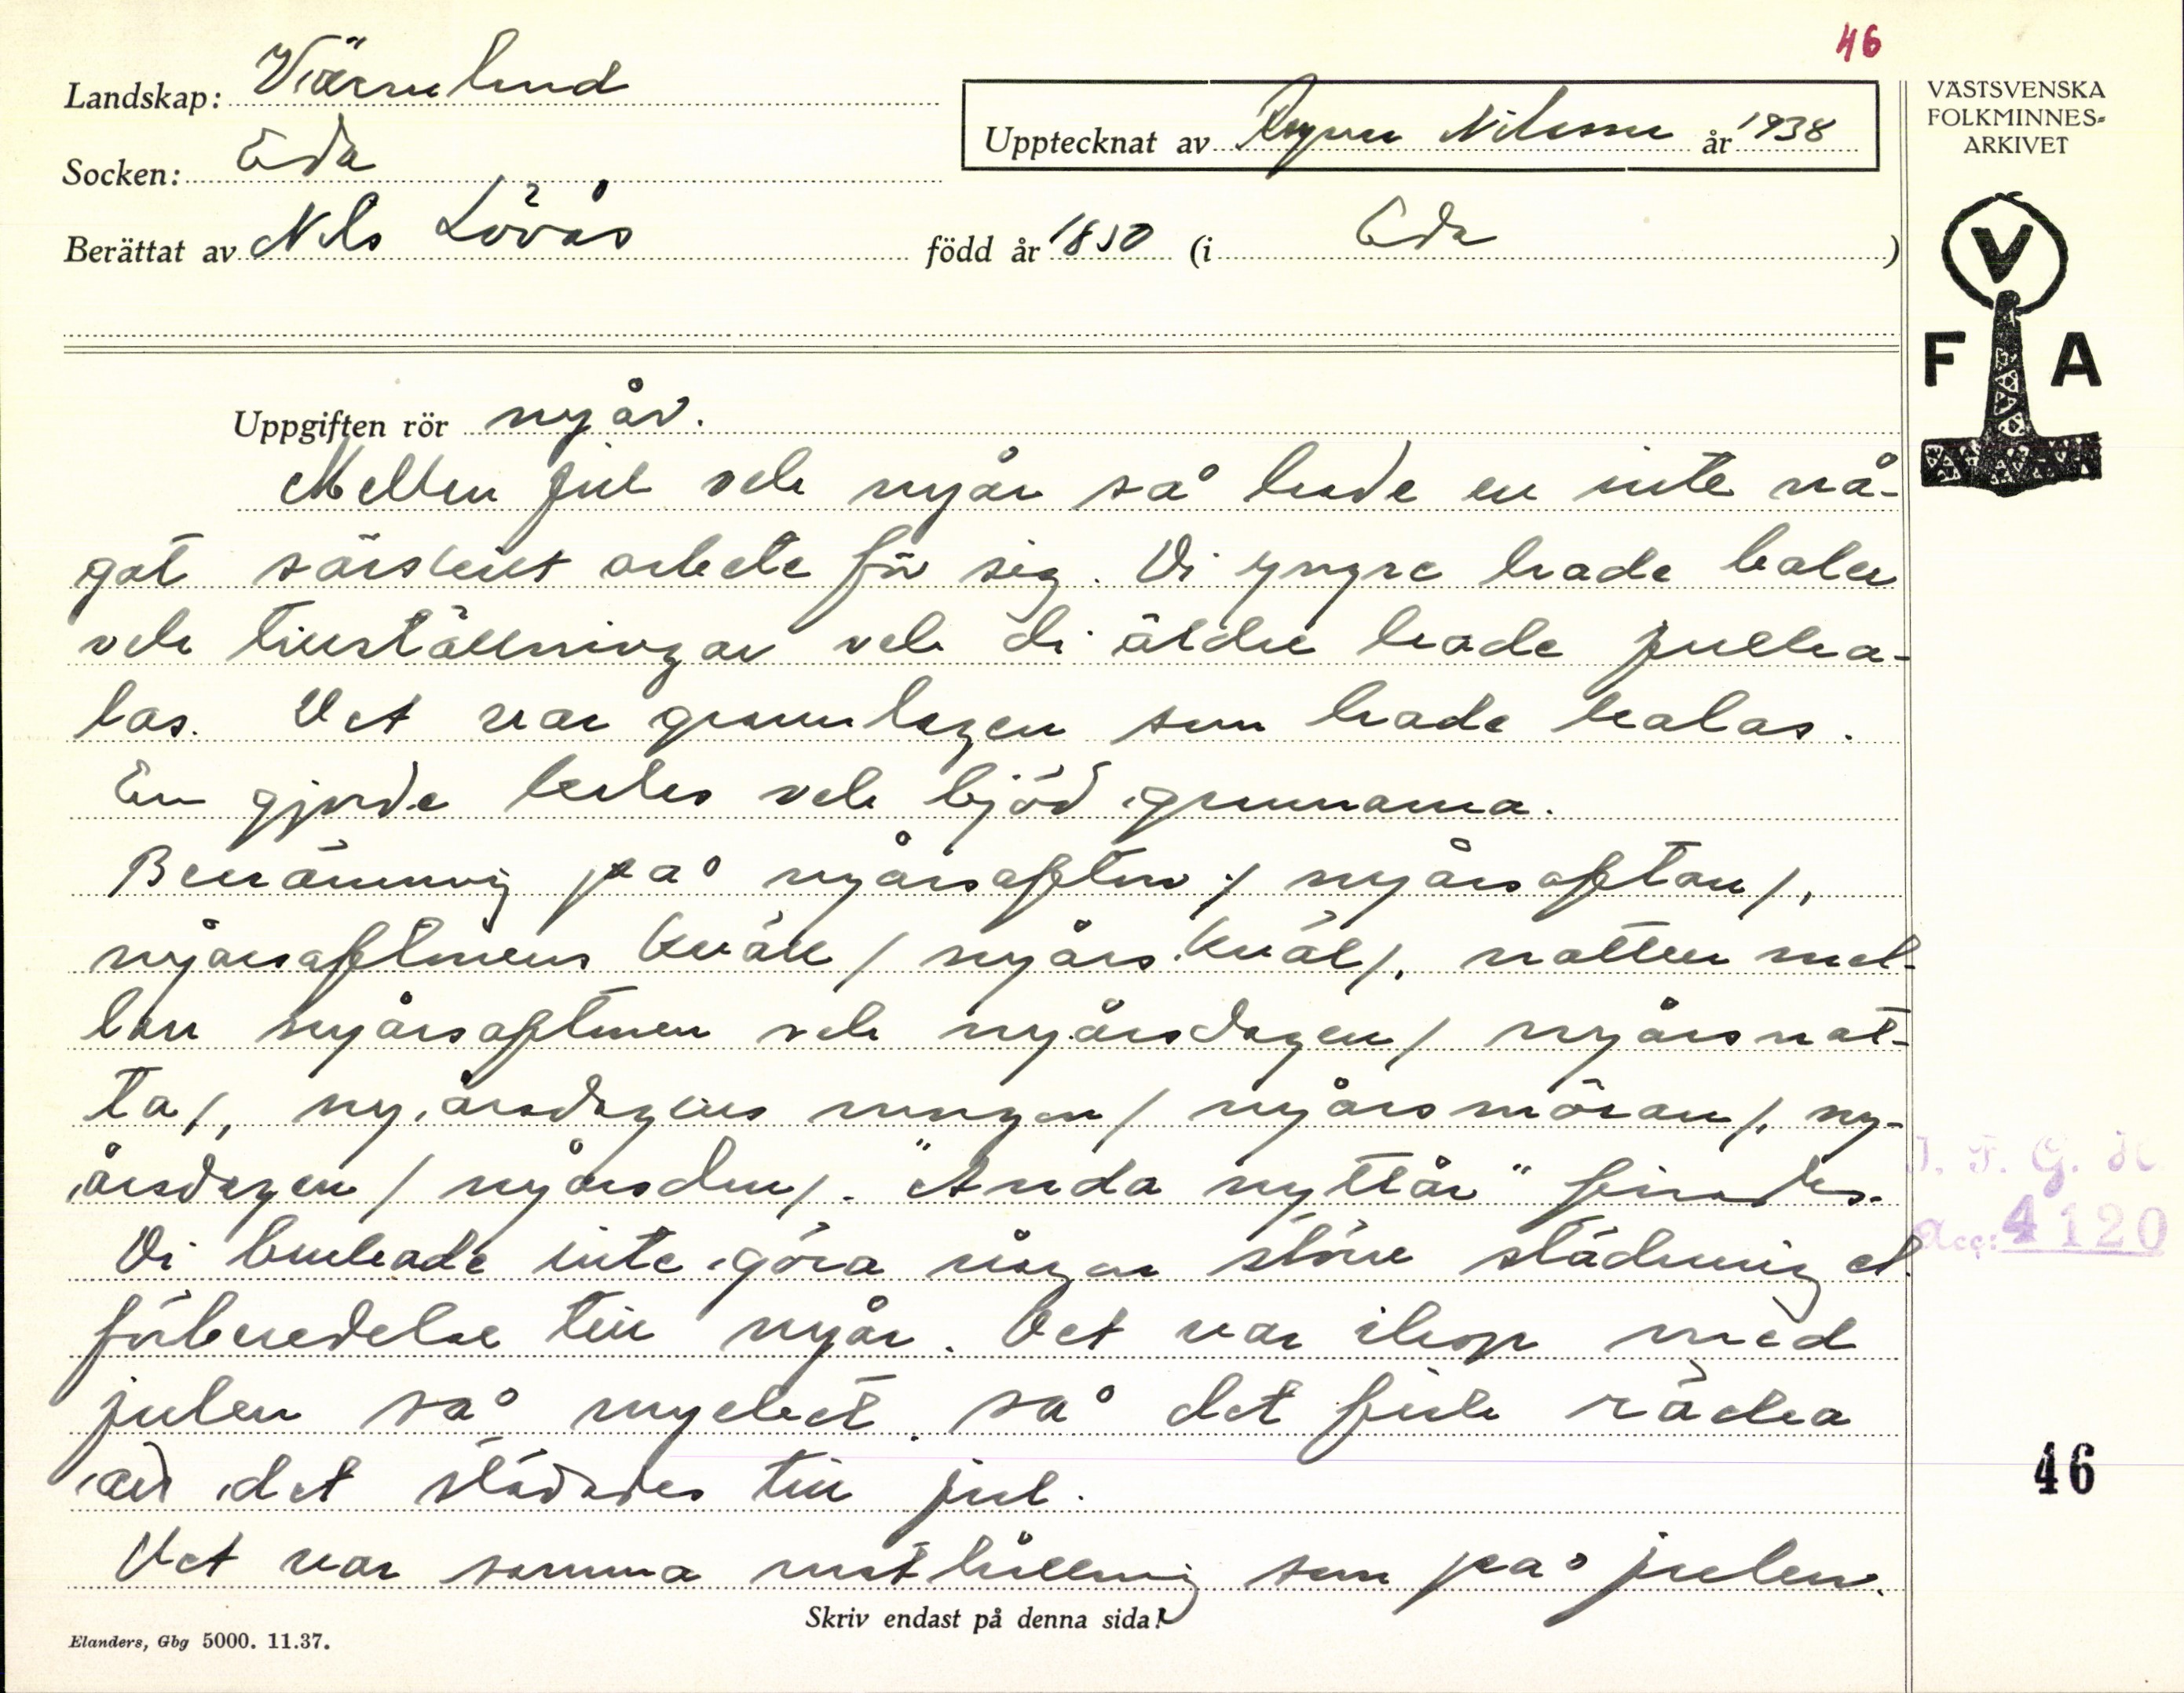 46
Landskap: Värmland
Socken: Eda
Upptecknat av Ragnar Nilsson år 1938
Berättat av Nils Lövås född år 1850 (i Eda)
VÄSTSVENSKA
FOLKMINNES-
ARKIVET
V
F A
Uppgiften rör nyår.
Mellan jul och nyår så hade en inte nå-
got särskilt arbete för sig. Vi yngre hade baler
och tillställningar och di äldre hade julka-
las. Det var grannlagen som hade kalas.
En gjorde kalas och bjöd grannarna.
Benämning på nyårsafton / nyårsaftan /,
nyårsaftonens kväll / nyårskväl /, natten mel-
lan nyårsaftonen och nyårsdagen / nyårsnat-
ta /, nyårsdagens morgon / nyårsmöran /, ny-
årsdagen / nyårsdan /. "Anda nyttår" firades.
Vi brukade inte göra någon större städning el.
förberedelse till nyår. Det var ihop med
julen så mycket, så det fick räcka
att det städades till jul.
Det var samma mathållning som på julen.
J. F. G. H.
Acc: 4120
46
Skriv endast på denna sida!
Elanders, Gbg 5000. 11.37.